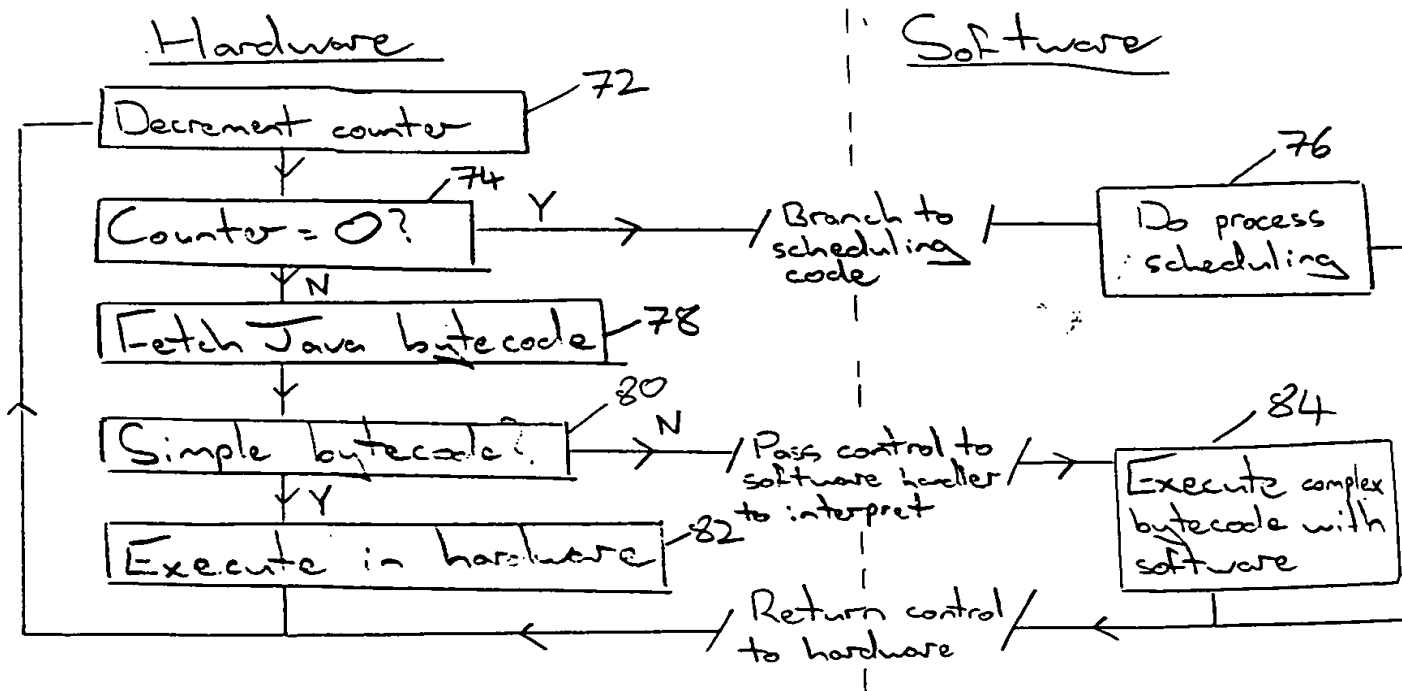 Hardware
Software
72
Decrement counter
74
Counter = 0?
Y
Branch to
scheduling
code
76
Do process
scheduling
N
Fetch Java bytecode
78
80
Simple bytecode?
N
Pass control to
software handler
to interpret
84
Execute complex
bytecode with
software
Y
Execute in hardware
82
Return control
to hardware